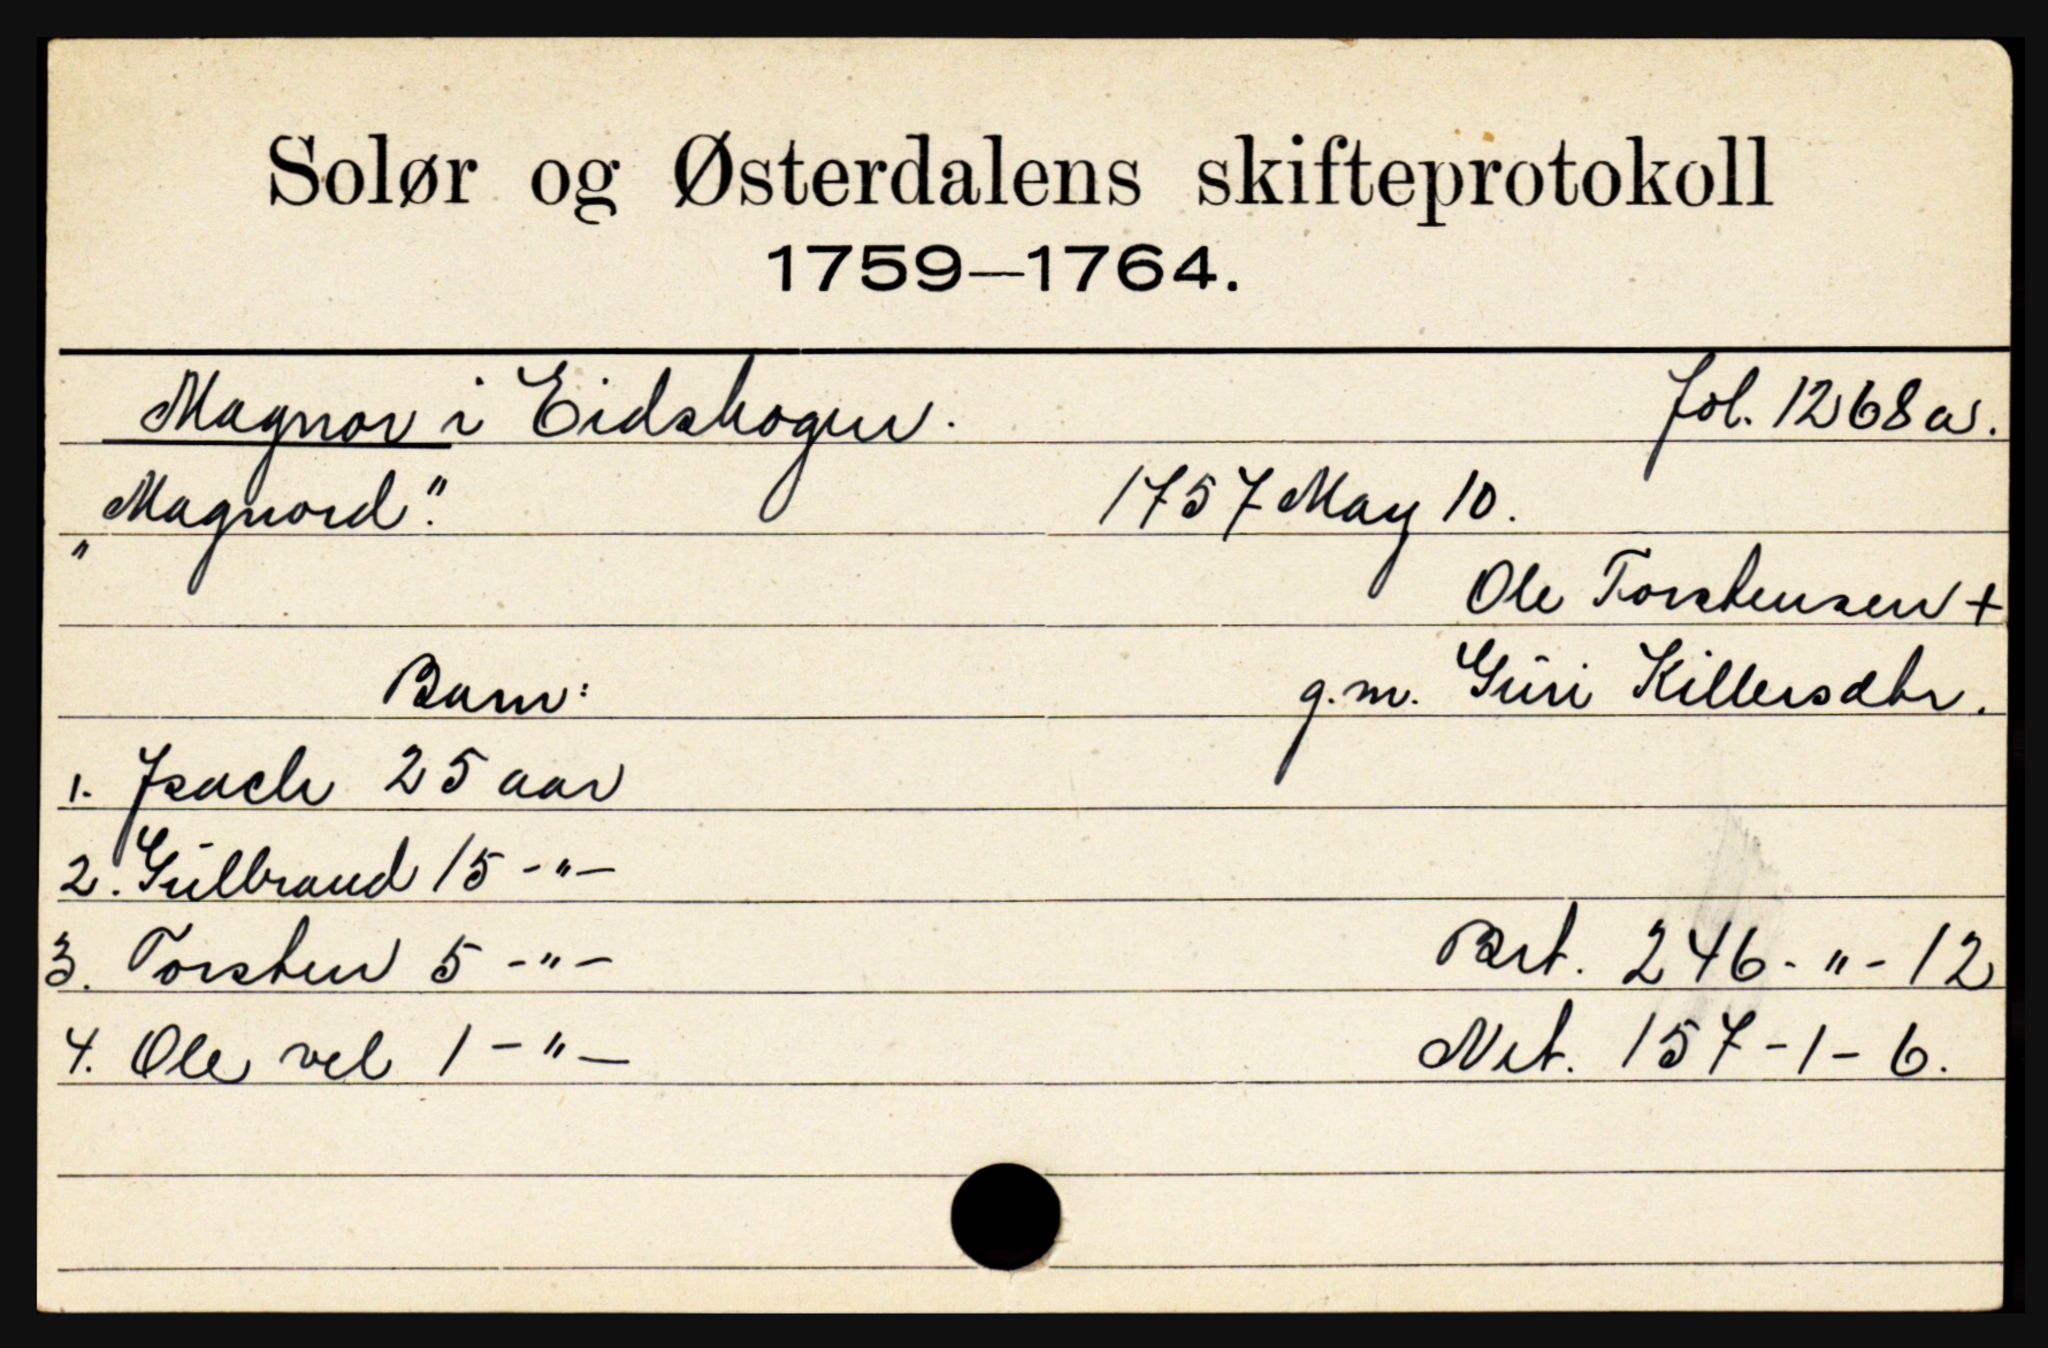 Solør og Østerdalens skifteprotokoll
1759—1764.
Magnor i Eidskogen. fol. 1268a.
"Magnord". 1757 May 10.
Ole Torstensen +
Barn: g.m. Gŭri Killersdtr.
1. Isach 25 aar
2. Gŭlbrand 15 -"-
3. Torsten 5 -"- Brt. 246-"-12
4. Ole vel 1 -"- Net. 157-1-6.